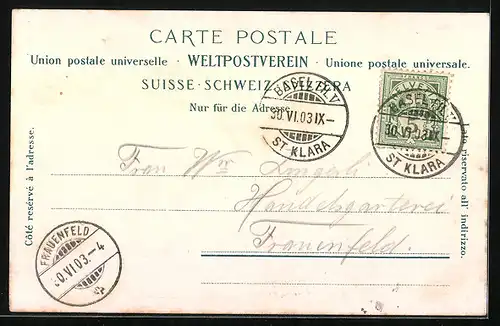 CARTE POSTALE
Union postale universelle · WELTPOSTVEREIN · Unione postale universale.
SUISSE · SCHWEIZ · SVIZZERA
Nur für die Adresse
Côté reservé à l'adresse.
Lato riservato all' indirizzo.
HELVETIA
5
BASEL FIL. V
30.VI.03 IX–
ST KLARA
BASEL FIL. V
30.VI.03 IX–
ST KLARA
Frau Wwe
Handelsgärtnerei
Frauenfeld.
FRAUENFELD
30.VI.03.–4